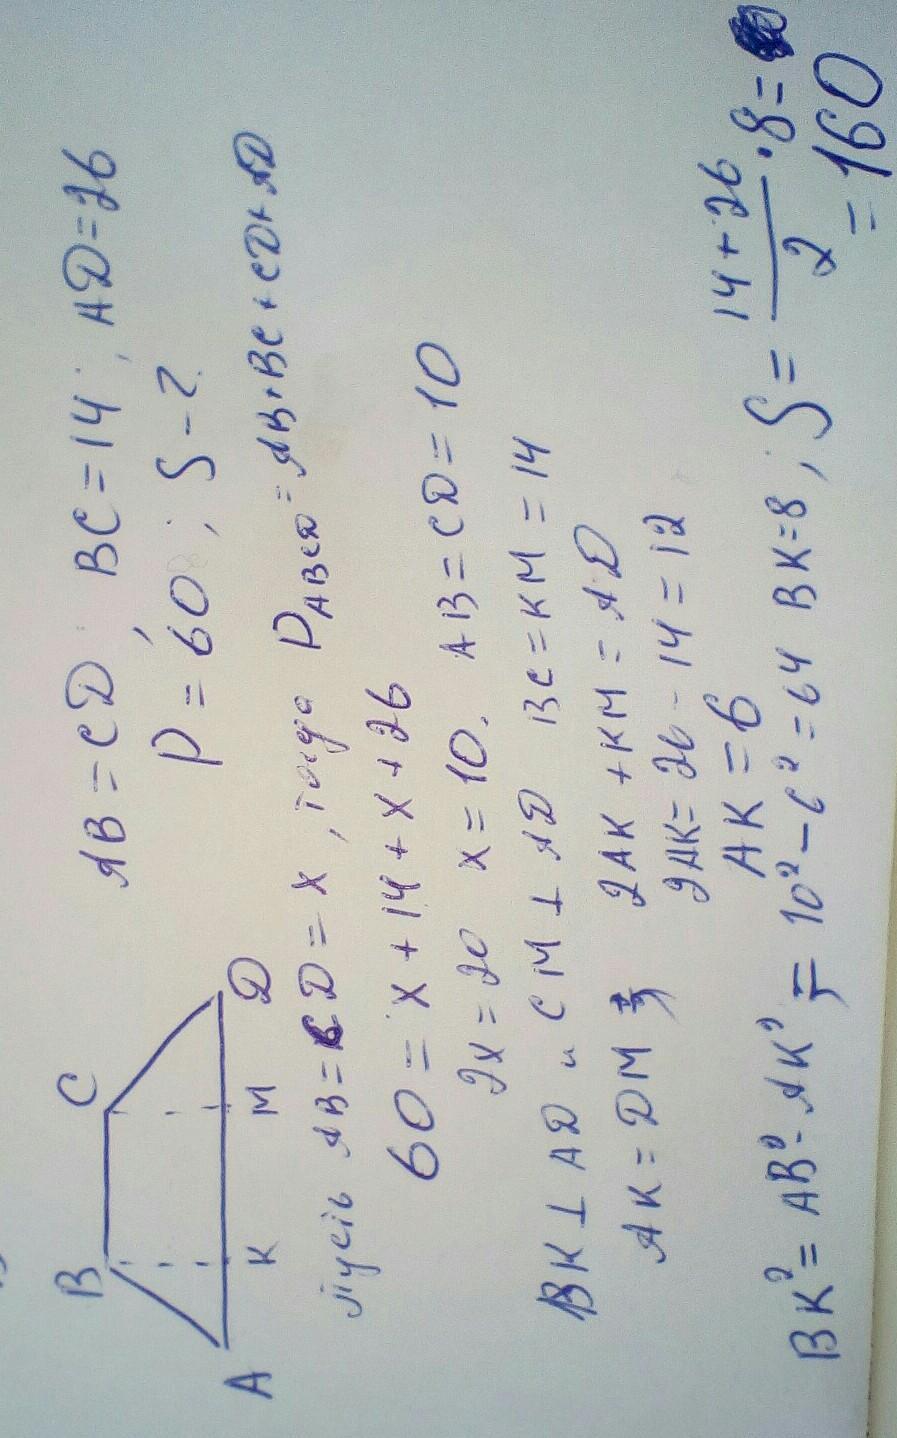 AB = CD; BC = 14; AD = 26
P = 60; S - ?
B C
A K M D
Пусть AB = CD = x, тогда P ABCD = AB + BC + CD + AD
60 = x + 14 + x + 26
2x = 20 x = 10. AB = CD = 10
BK ⊥ AD и CM ⊥ AD BC = KM = 14
AK = DM 2AK + KM = AD
2AK = 26 - 14 = 12
AK = 6
BK² = AB² - AK² = 10² - 6² = 64 BK = 8; S = (14 + 26)/2 · 8 =
= 160